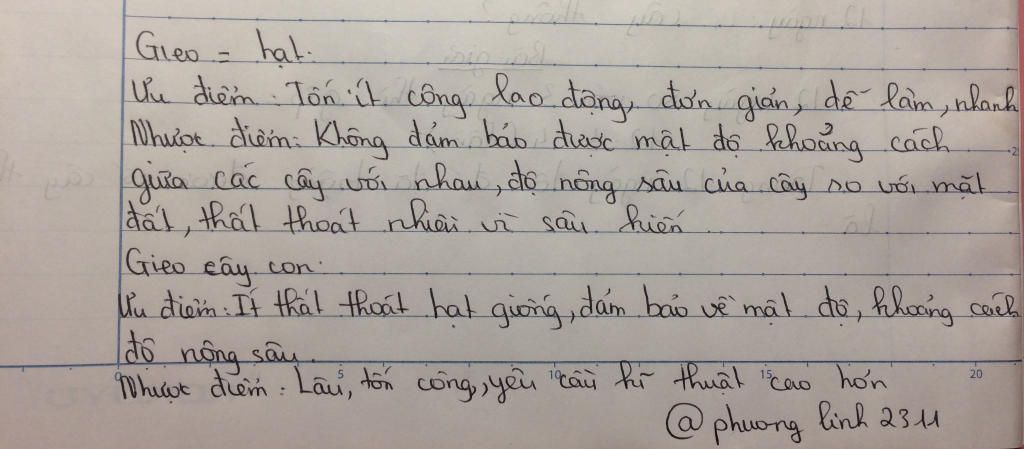 Gieo = hạt.
Ưu điểm: Tốn ít công lao động, đơn giản, dễ làm, nhanh
Nhược điểm: Không đảm bảo được mật độ khoảng cách
giữa các cây với nhau, độ nông sâu của cây so với mặt
đất, thất thoát nhiều vì sâu kiến
Gieo cây con:
Ưu điểm: Ít thất thoát hạt giống, đảm bảo về mật độ, khoảng cách
độ nông sâu.
Nhược điểm: Lâu, tốn công, yêu cầu kĩ thuật cao hơn
@ phuong linh 2311